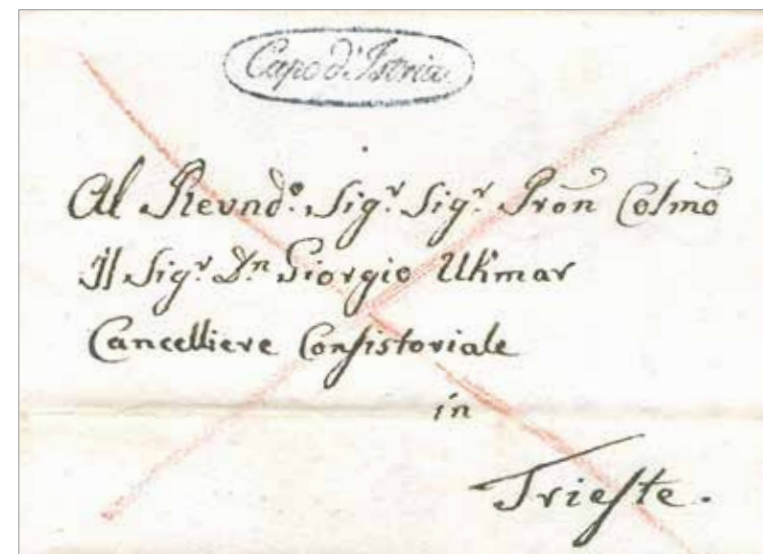 Capo d'Istria.
Al Revnd.º Sig.r Sig.r Pron Colmo
Il Sig.r Dn Giorgio Ukmar
Cancelliere Consistoriale
in
Trieste.